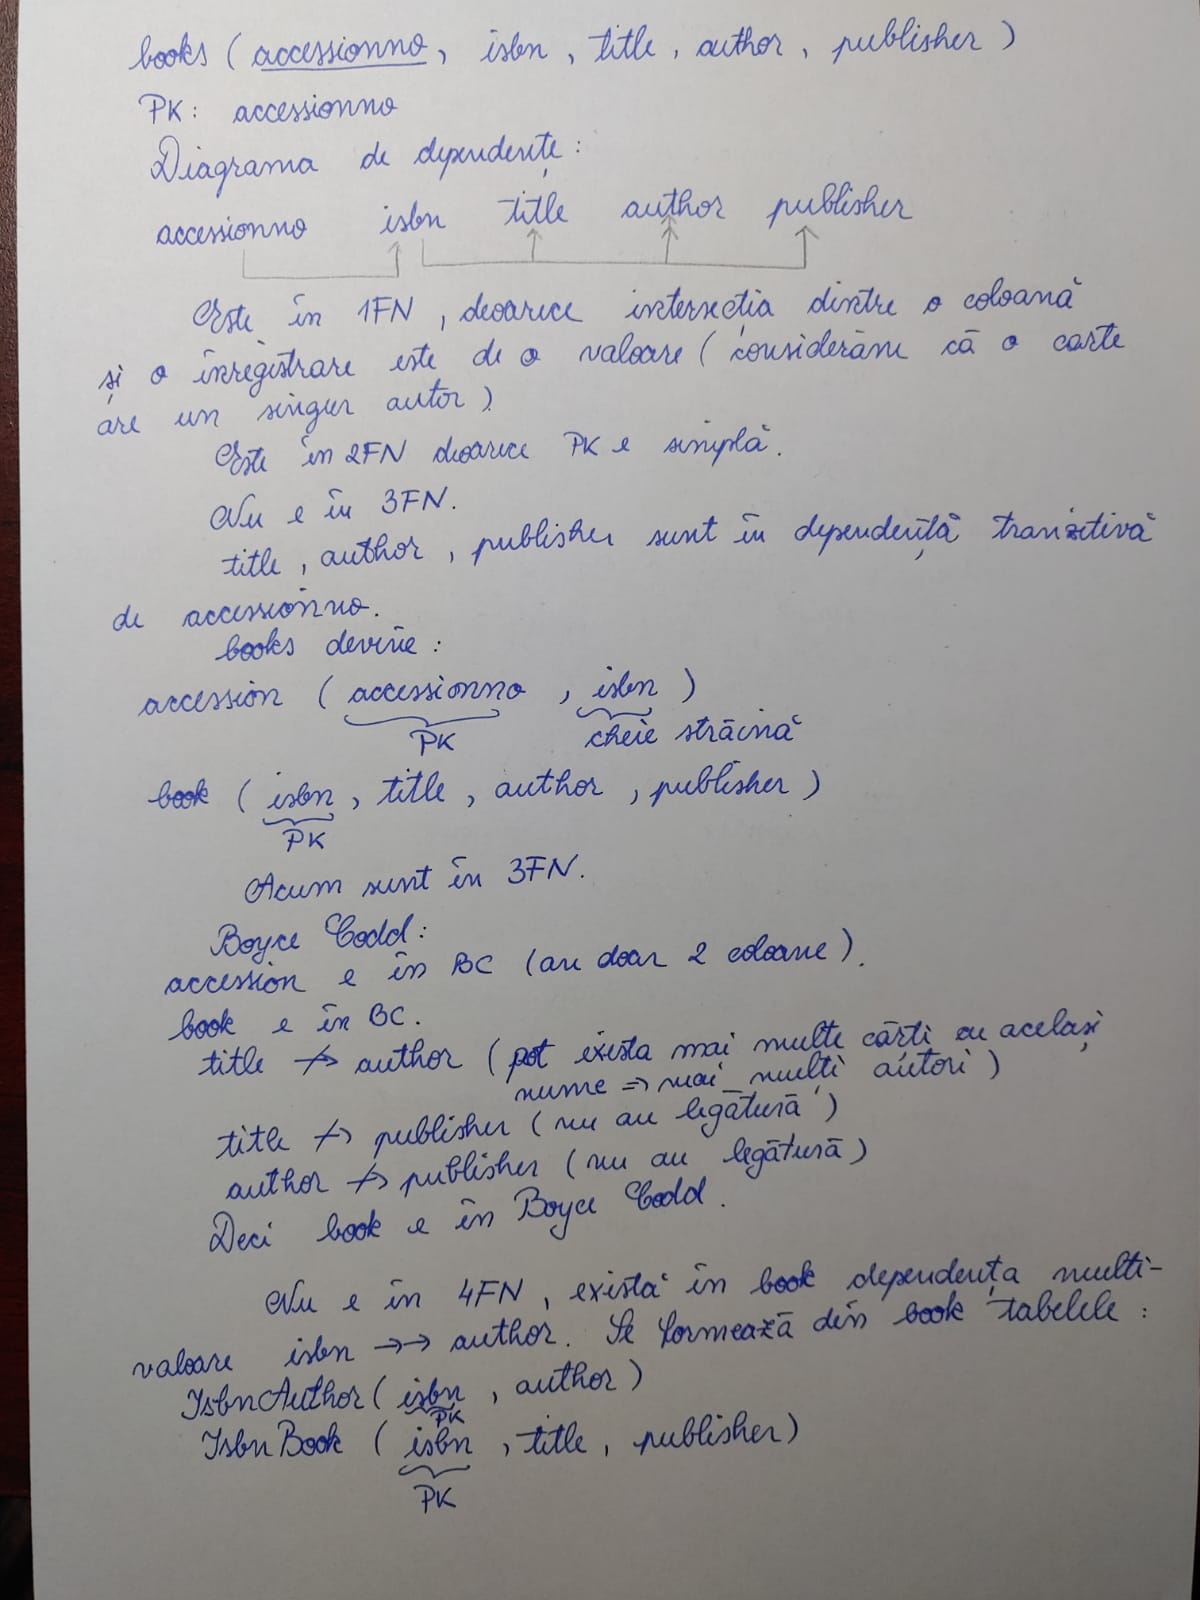 books ( accessionno , isbn , title , author , publisher )
PK: accessionno
Diagrama de dependențe :
accessionno isbn title author publisher
Este în 1FN , deoarece intersecția dintre o coloană
și o înregistrare este de o valoare ( considerăm că o carte
are un singur autor ).
Este în 2FN deoarece PK e simplă.
Nu e în 3FN.
title , author , publisher sunt în dependență tranzitivă
de accessionno.
books devine :
accession ( accessionno , isbn )
PK cheie străină
book ( isbn , title , author , publisher )
PK
Acum sunt în 3FN.
Boyce Codd :
accession e în BC (au doar 2 coloane ).
book e în BC.
title ↛ author ( pot exista mai multe cărți cu același
nume => mai mulți autori )
title ↛ publisher ( nu au legătură )
author ↛ publisher ( nu au legătură )
Deci book e în Boyce Codd .
Nu e în 4FN , există în book dependența multi-
valoare isbn →→ author. Se formează din book tabelele :
IsbnAuthor ( isbn , author )
PK
IsbnBook ( isbn , title , publisher )
PK